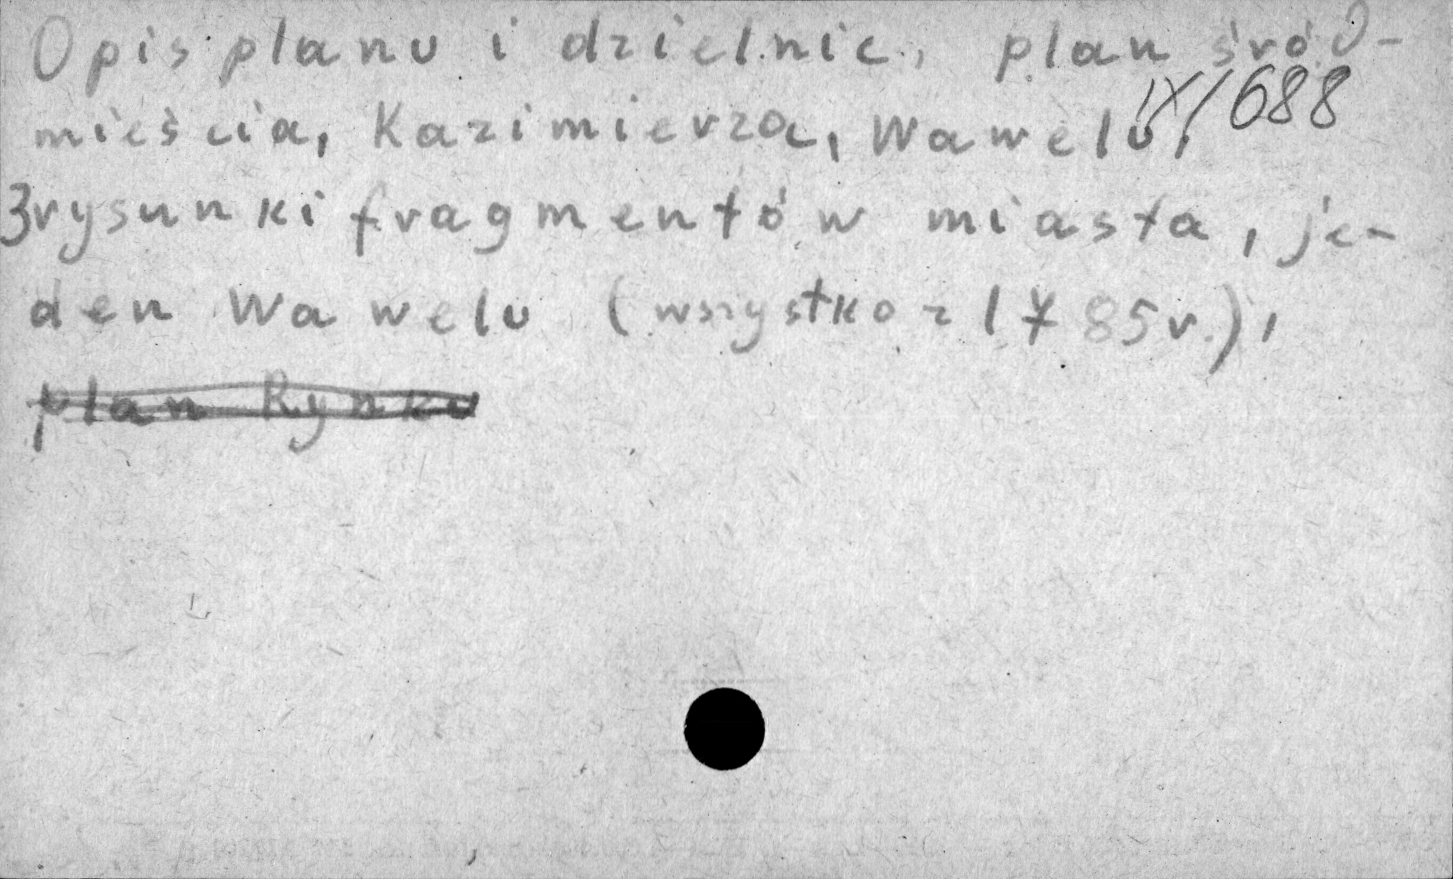 Opis planu i dzielnic, plan śród-
IX/688
mieścia, Kazimierza, Wawelu,
3 rysunki fragmentów miasta, je-
den Wawelu (wszystko z 1785 r.),
plan Rynku